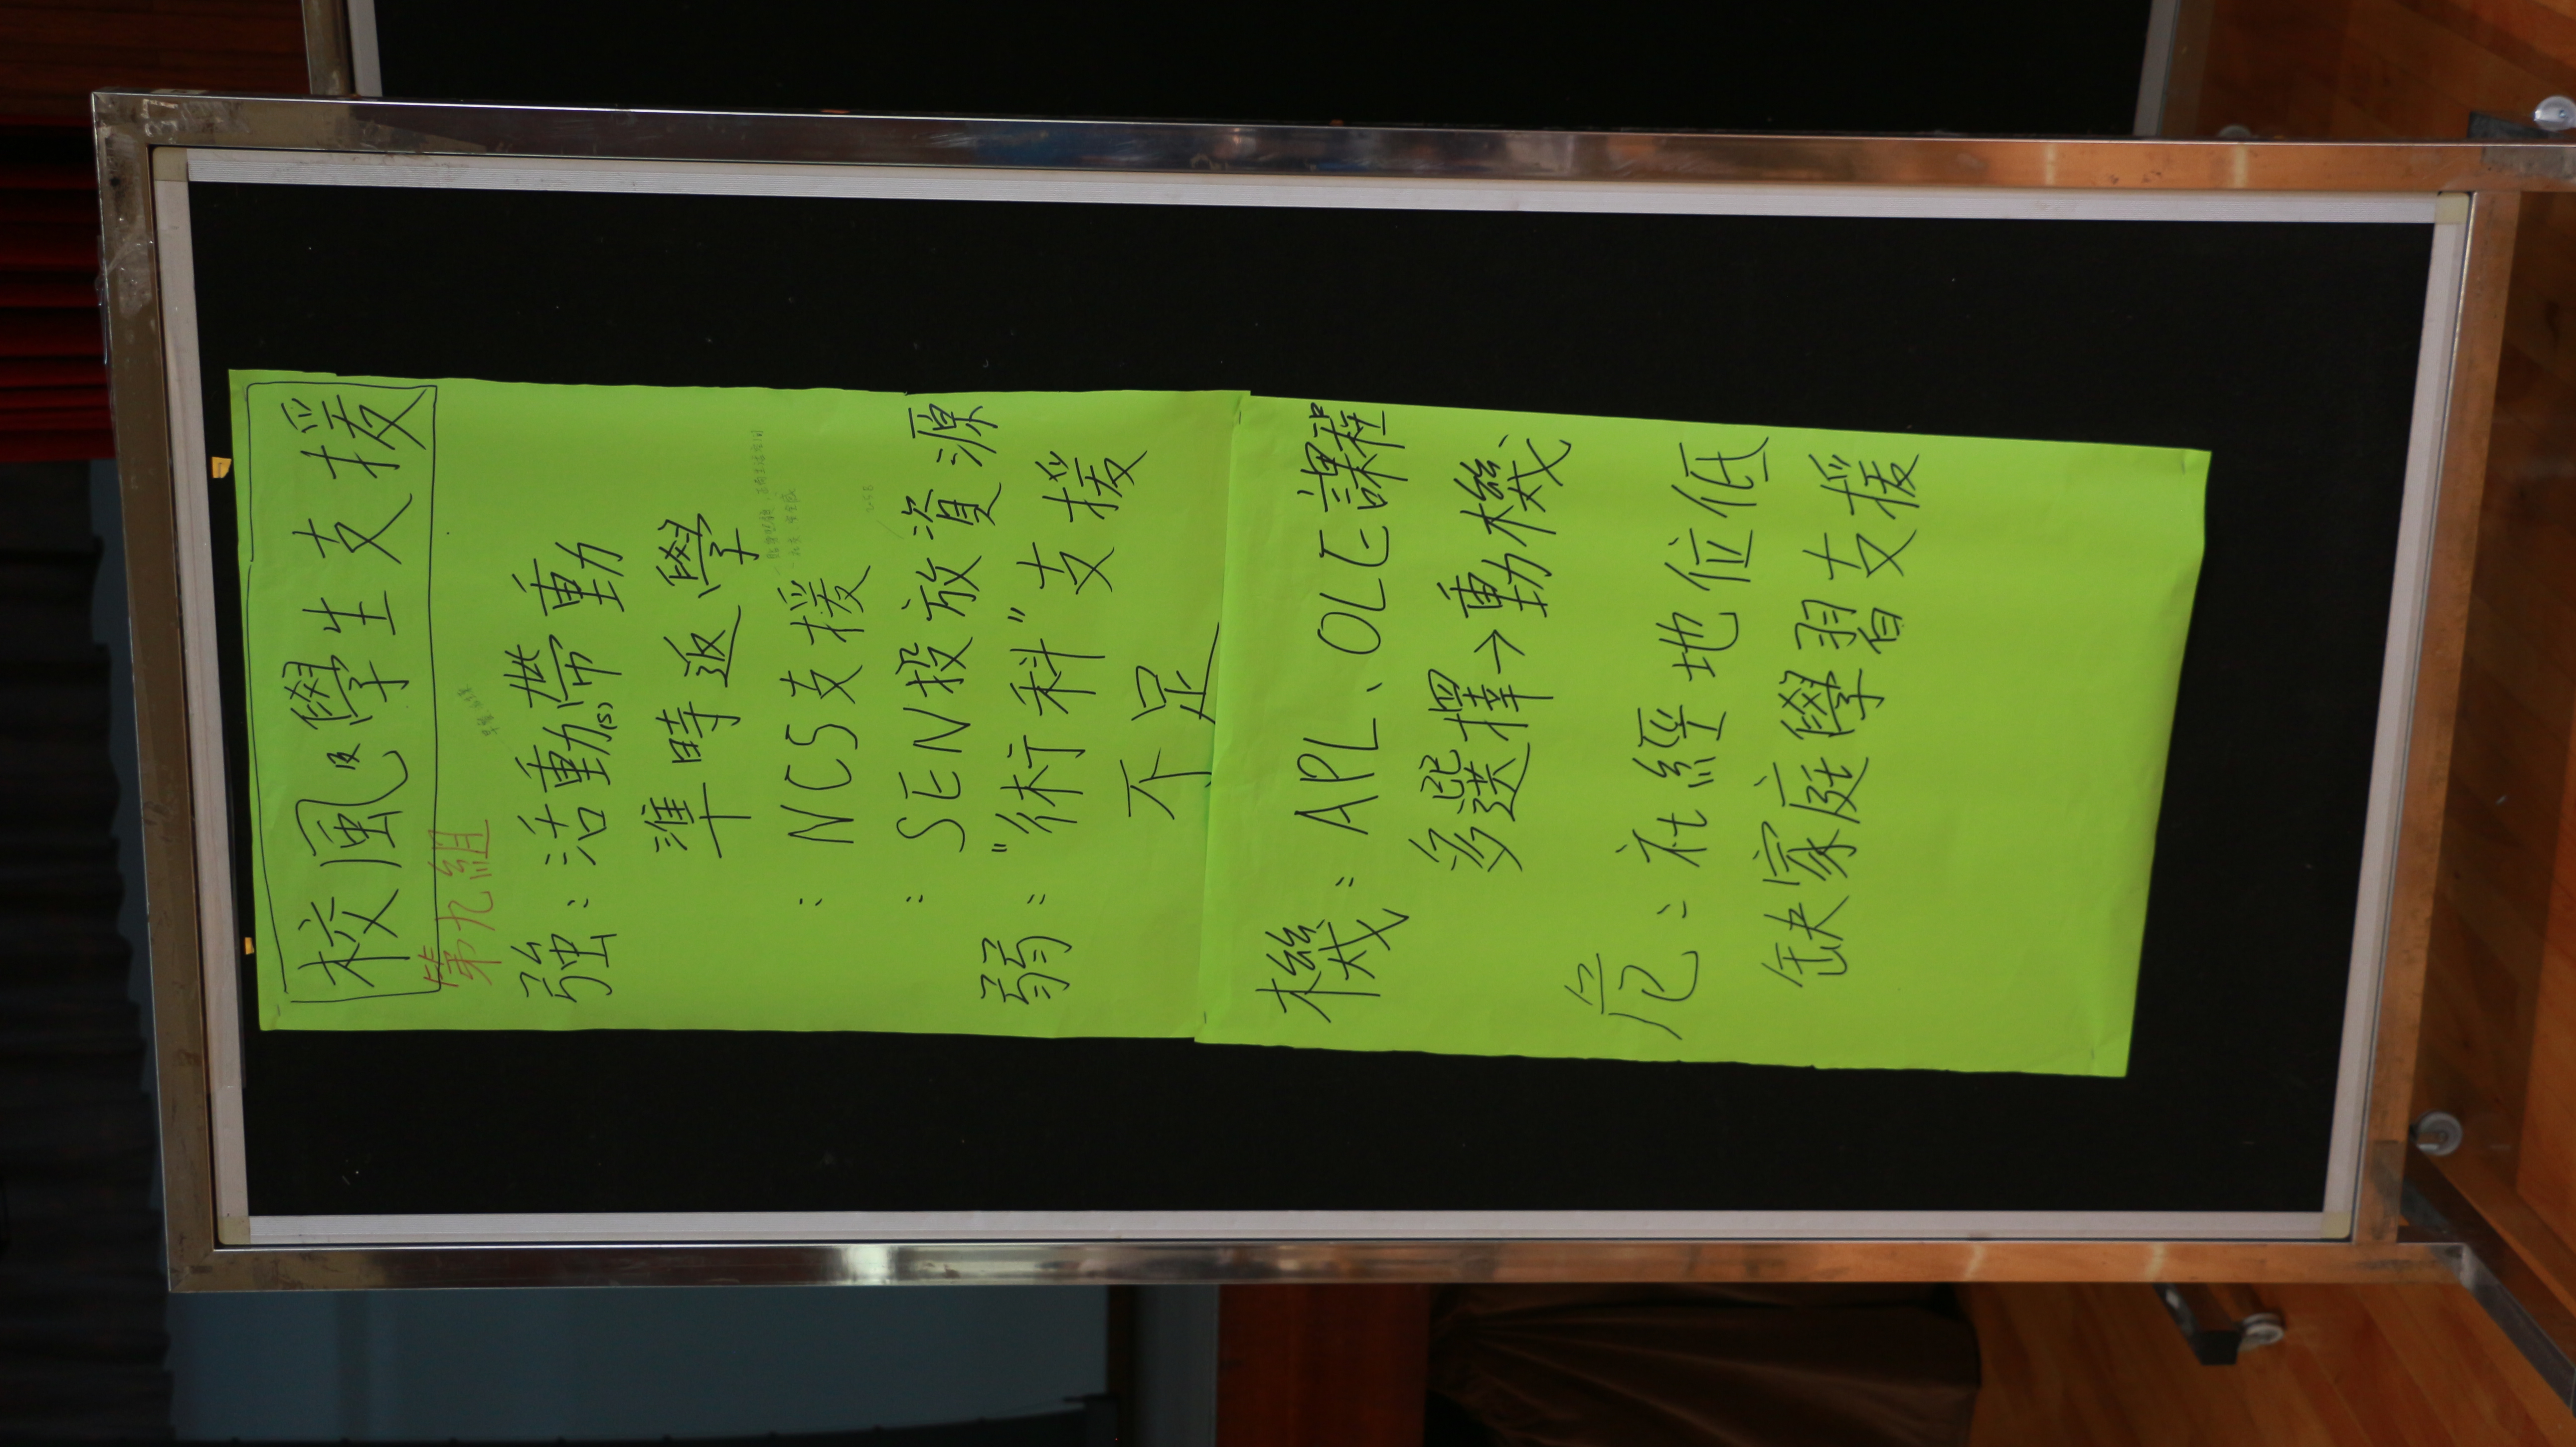 校風及學生支援
第九組
強：活動(s)帶動
準時返學
：NCS支援
：SEN投放資源
弱："術科"支援
不足
機：APL、OLE課程
多選擇→動機
危：社經地位低
缺家庭學習支援